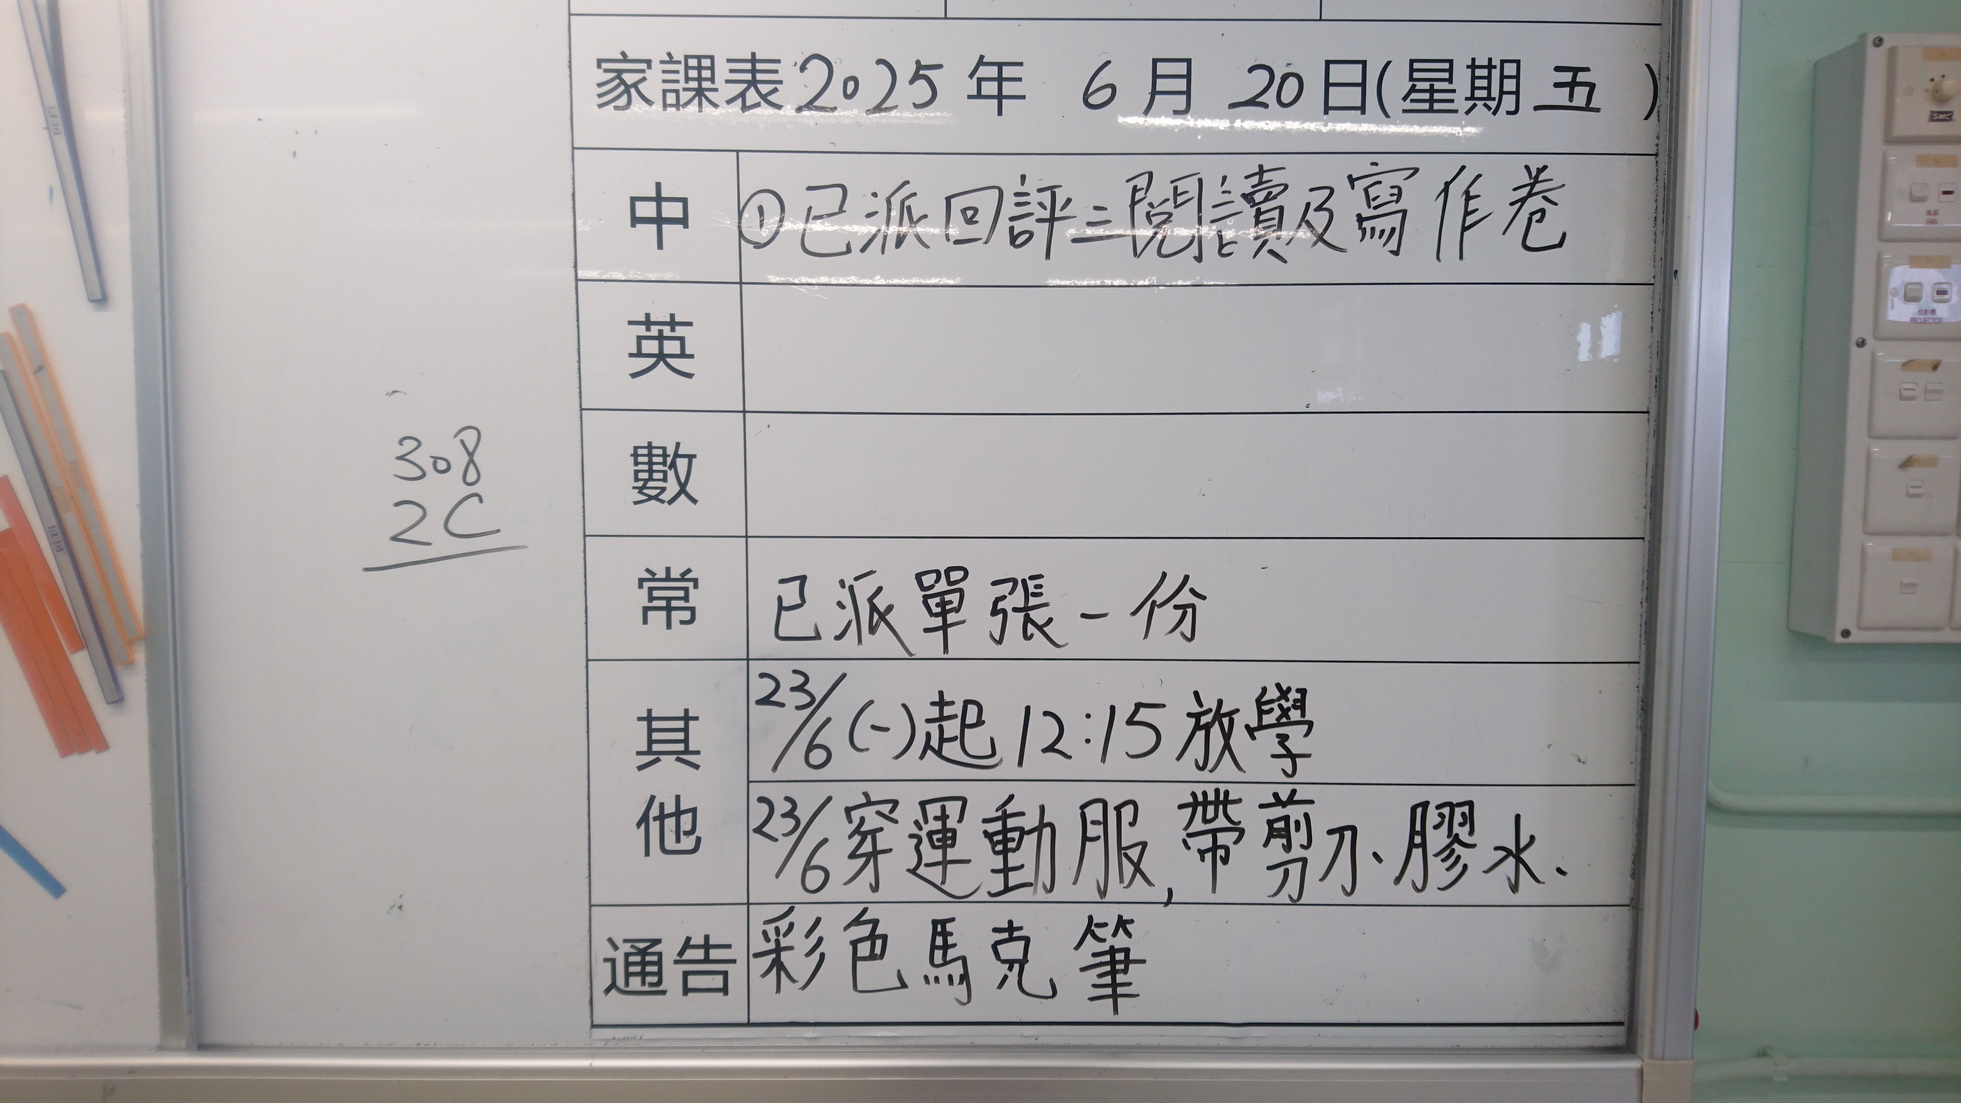 家課表2025年 6月 20日(星期五 )
中 ①已派回評三閱讀及寫作卷
英
數
308
2C
常 已派單張一份
其他 23/6(一)起12:15放學
23/6穿運動服,帶剪刀、膠水、
通告 彩色馬克筆
SMC
PROJECTOR